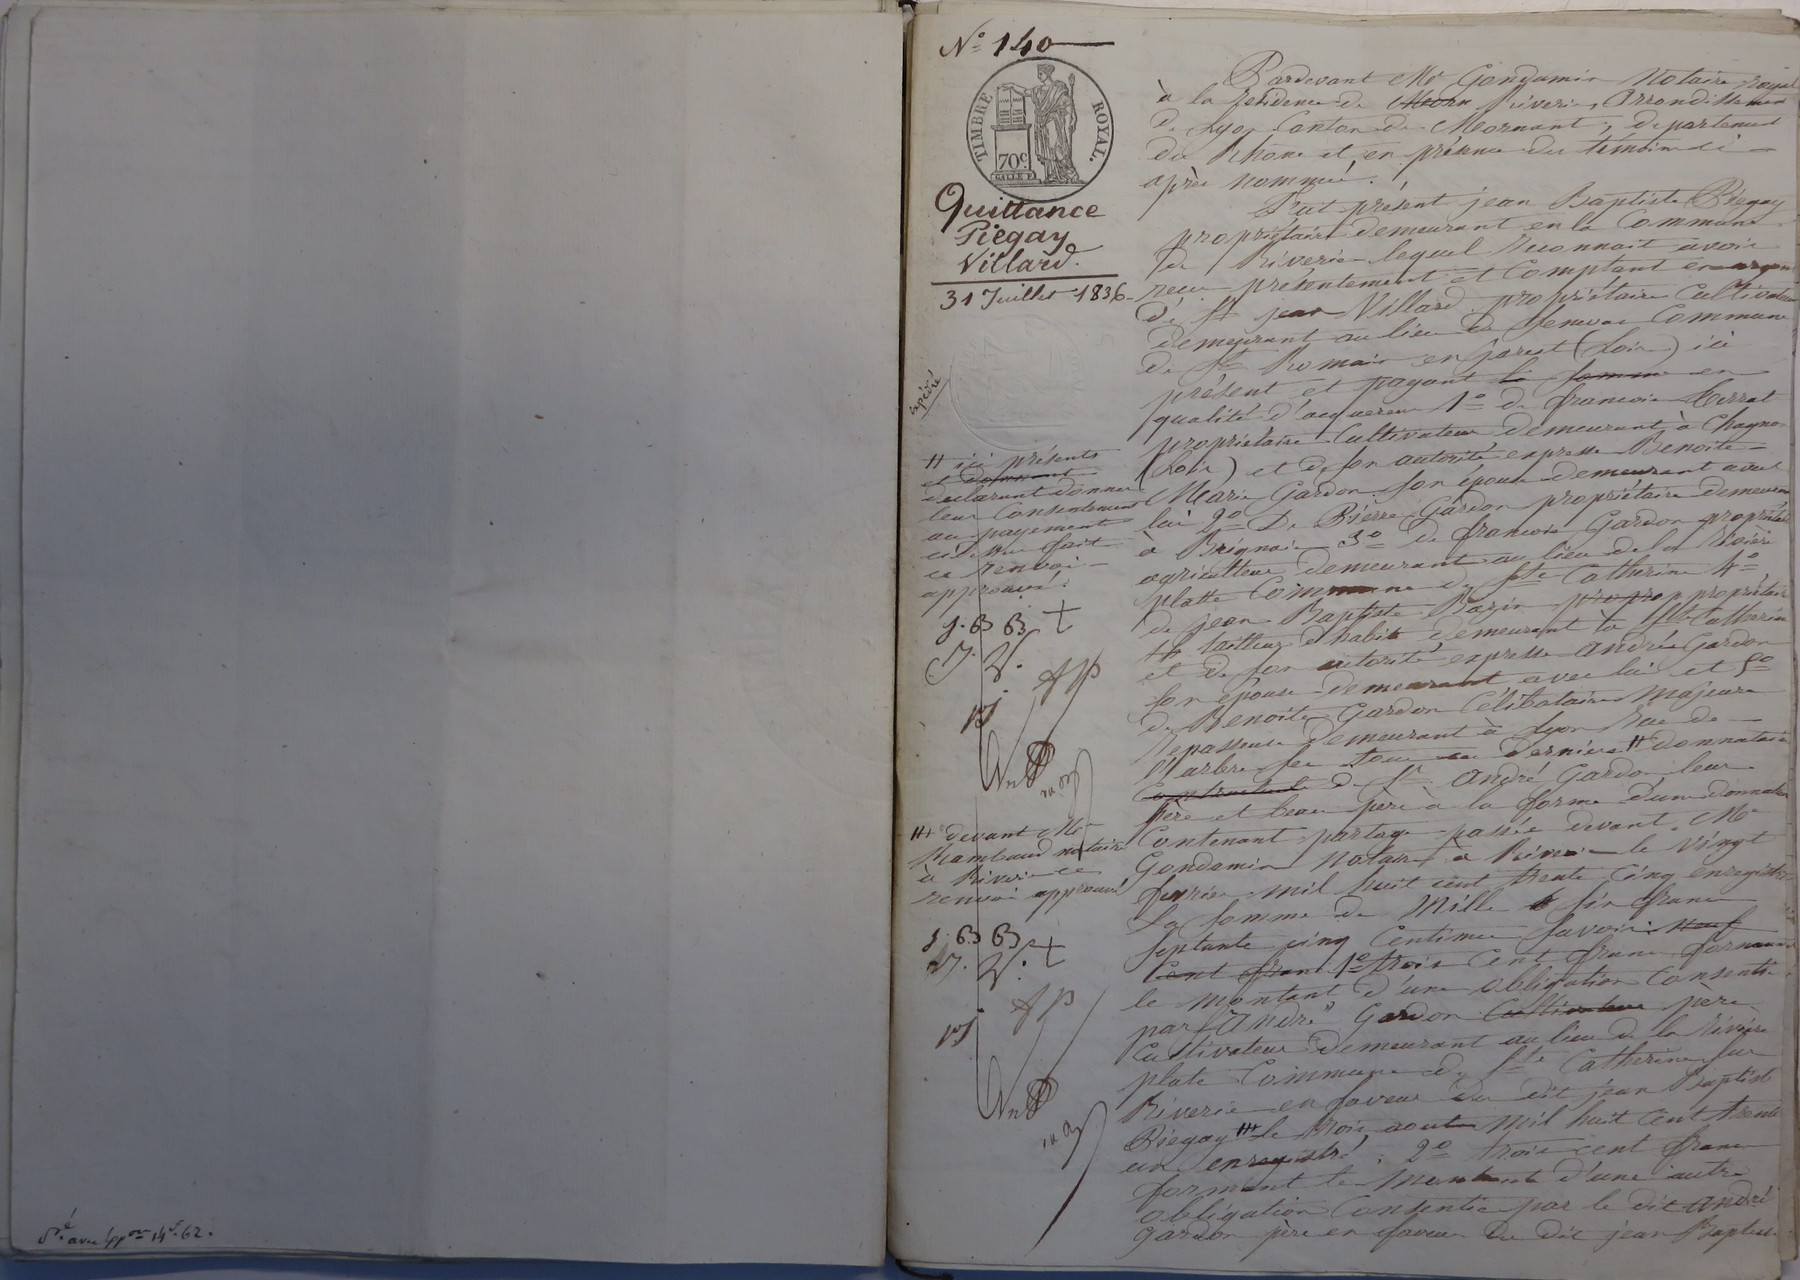 Sé. avec Exp.on 14f. 62.
N° 140
TIMBRE ROYAL.
70c.
Quittance
Piégay
Villard.
31 Juillet 1836
expédié
Pardevant Me Gondamin Notaire royal
à la résidence de Morn Riverie, Arrondissement
de Lyon Canton de Mornant, département
du Rhône et en présence des témoins ci-
après nommés.
Fut présent jean Baptiste Piégay
propriétaire demeurant en la Commune
de Riverie lequel Reconnait avoir
reçu présentement et Comptant en argent
de Sr jean Villard propriétaire Cultivateur
demeurant au lieu de Senevas Commune
de St Romain en jarest (Loire) ici
présent et payant la somme en
qualité d'acquéreur 1° de françois Merrat
propriétaire Cultivateur demeurant à Chagnon
(Loire) et de son autorité expresse Benoite
Marie Gardon son épouse demeurant avec
lui 2° De Pierre Gardon propriétaire demeurant
à Brignais 3° de françois Gardon propriétaire
agriculteur demeurant au lieu de la Rivière
platte Commune de Ste Catherine 4°
de jean Baptiste Bazin pro prop propriétaire
tailleur d'habits demeurant à Ste Catherine
et de son autorité expresse andrée Gardon
son épouse demeurant avec lui et 5°
de Benoite Gardon Célibataire Majeure
Repasseuse demeurant à Lyon Rue de
l'arbre sec tous ces derniers # donnataires
de Sr André Gardon leur
père et beau père à la forme d'une donnation
Contenant partage passée devant Me
Gondamin Notaire à Riverie le vingt
février mil huit cent trente Cinq enregistré
La somme de Mille six francs
septante cinq Centimes savoir: Neuf
Cent fran 1° trois Cent francs formant
le montant d'une obligation Consentie
par Sr André Gardon Cultivateur père
Cultivateur demeurant au lieu de la Rivière
plate Commune de Ste Catherine sur
Riverie en faveur du dit jean Baptiste
Piegay ## le trois aout Mil huit Cent trente
un enregistré; 2° trois cent francs
formant le Montant d'une autre
obligation Consentie par le dit andré
Gardon père en faveur du dit jean Baptiste
# ici présents
et donnant
declarant donner
leur Consentement
au payement
ce renvoi
approuvé.
j. B B +
J. V.
JP
## devant Me
Rambaud notaire
à Riverie ce
renvoi approuvé
j. B B +
J. V.
JP